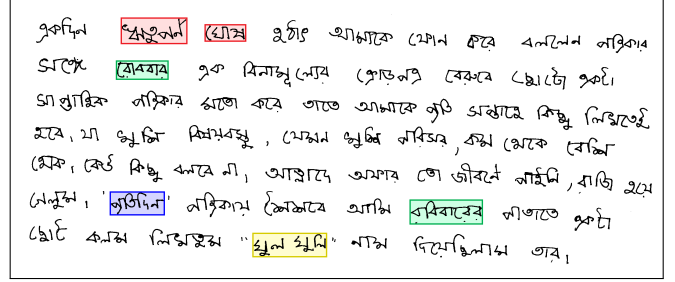 একদিন ঋতুপর্ণ ঘোষ হঠাৎ আমাকে ফোন করে বললেন পত্রিকার
সঙ্গে রোববার এক বিনামূল্যের ক্রোড়পত্র বেরুবে ছোটো একটা
সাপ্তাহিক পত্রিকার মতো করে তাতে আমাকে প্রতি সপ্তাহে কিছু লিখতেই
হবে, যা খুশি বিষয়বস্তু, যেমন খুশি পরিসর, কম থেকে বেশি
হোক, কেউ কিছু বলবে না, আহ্লাদে অফার তো জীবনে পাইনি, রাজি হয়ে
গেলুম, 'প্রতিদিন' পত্রিকায় শৈশবে আমি রবিবারের পাতাতে একটা
ছোট কলম লিখতুম "খুল খুলি" নাম দিয়েছিলাম তার,